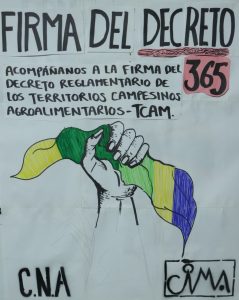 FIRMA DEL DECRETO
365
ACOMPÁÑANOS A LA FIRMA DEL
DECRETO REGLAMENTARIO DE
LOS TERRITORIOS CAMPESINOS
AGROALIMENTARIOS-TCAM.
C.N.A
CIMA